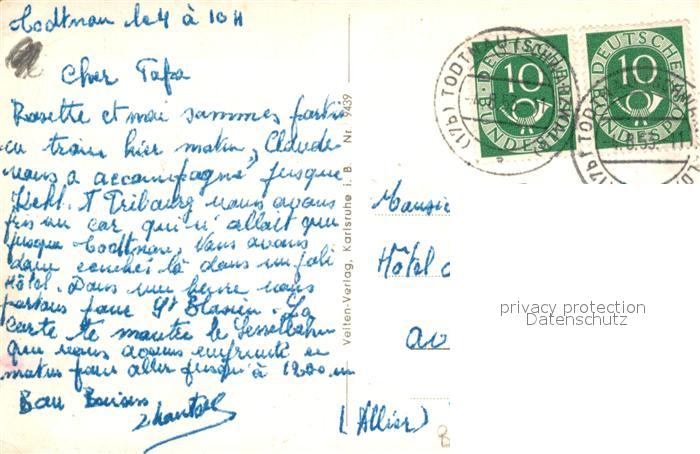 Todtnau le 4 à 10 H
Cher Papa
Rosette et moi sommes partis
en train hier matin, Claude
nous a accompagné jusque
Kehl. A Fribourg nous avons
pris un car qui n'allait que
jusque Todtnau. Nous avons
donc couché là dans un joli
Hôtel. Dans une heure nous
partons pour St Blasien. La
carte te montre le Sesselbahn
que nous avons emprunté ce
matin pour aller jusqu'à 1200 m
Bon Baisers
Velten-Verlag, Karlsruhe i. B. Nr. 9439
DEUTSCHE BUNDESPOST 10
DEUTSCHE BUNDESPOST 10
(17b) TODTNAU (SCHWARZWALD)
(17b) TODTNAU
Monsie
Hôtel
(Allier)
privacy protection
Datenschutz